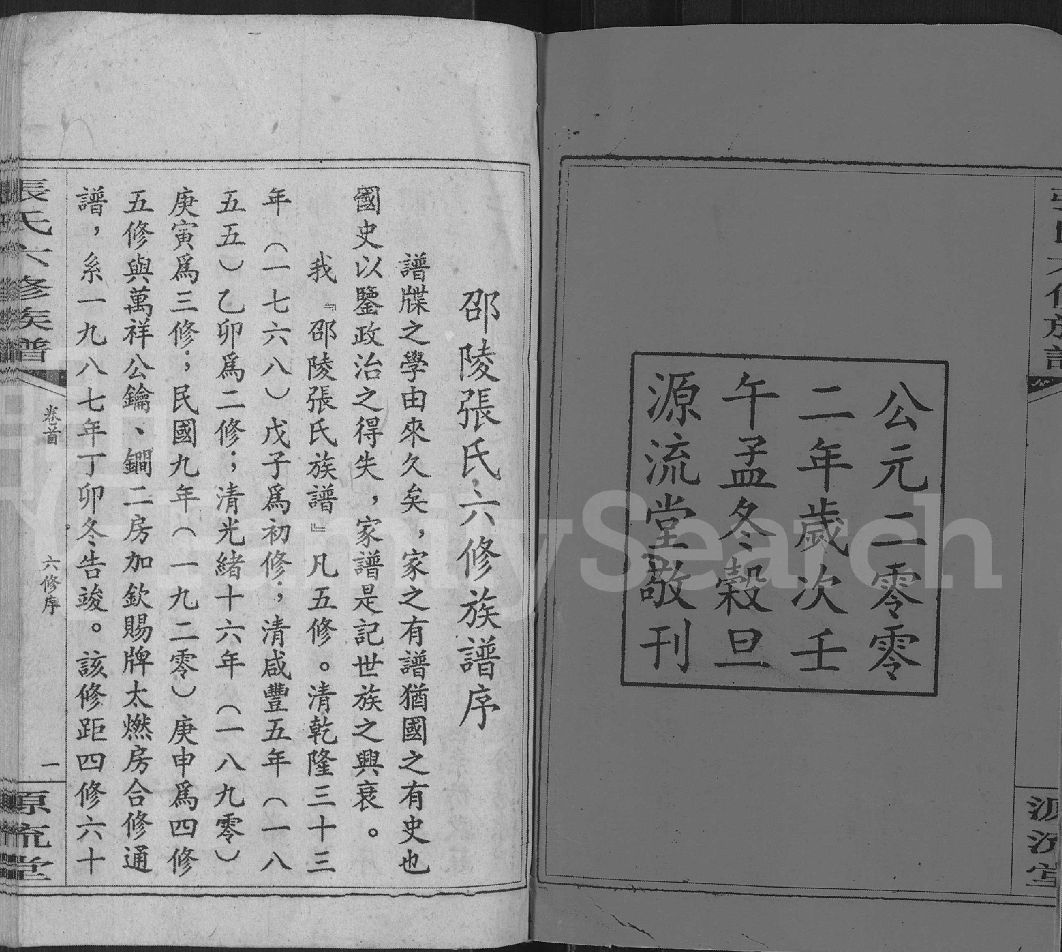 張氏六修族譜
源流堂
公元二零零
二年歲次壬
午孟冬穀旦
源流堂敬刊
邵陵張氏六修族譜序
譜牒之學由來久矣，家之有譜猶國之有史也
國史以鑒政治之得失，家譜是記世族之興衰。
我『邵陵張氏族譜』凡五修。清乾隆三十三
年（一七六八）戊子爲初修；清咸豐五年（一八
五五）乙卯爲二修；清光緒十六年（一八九零）
庚寅爲三修；民國九年（一九二零）庚申爲四修
五修與萬祥公鑰、鐧二房加欽賜牌太燃房合修通
譜，系一九八七年丁卯冬告竣。該修距四修六十
張氏六修族譜
卷首
六修序
一
源流堂
FamilySearch